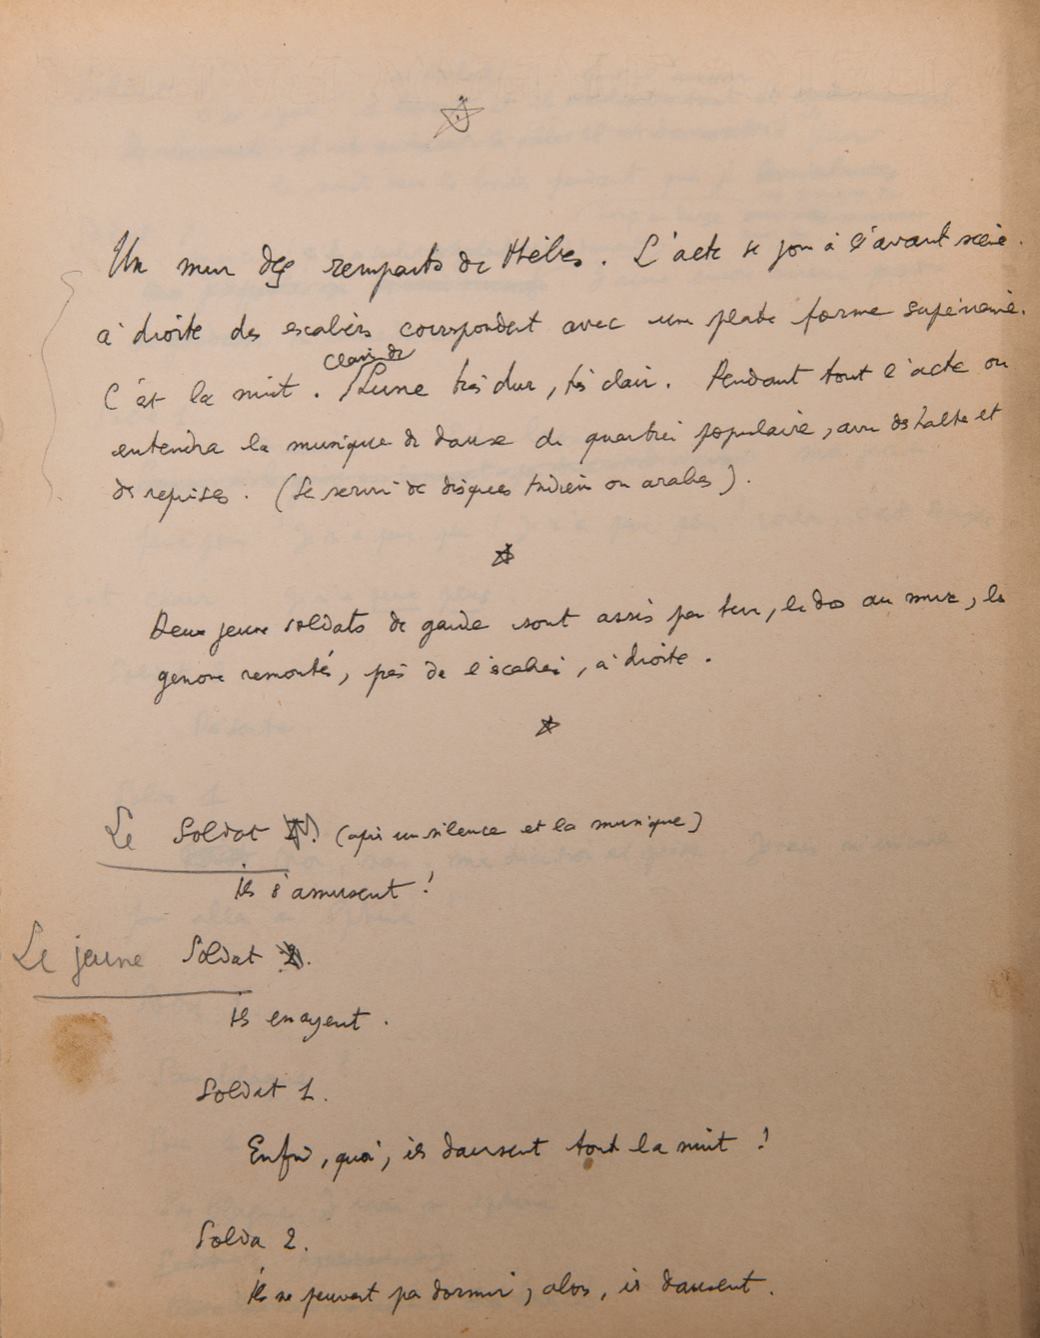 Un mur des remparts de Thèbes. L'acte se joue à l'avant scène.
à droite des escaliers correspondent avec une plate forme supérieure.
C'est la nuit. Clair de Lune très dur, très clair. Pendant tout l'acte on
entendra la musique de danse du quartier populaire, avec des halte et
des reprises. (Se servir de disques indien ou arabes).
Deux jeune soldats de garde sont assis par terre, le dos au mur, les
genoux remontés, près de l'escalier, à droite.
Le Soldat (après un silence et la musique)
Ils s'amusent !
Le jeune Soldat 2.
Ils essayent.
Soldat 1.
Enfin, quoi, ils dansent tout la nuit !
Solda 2.
Ils ne peuvent pas dormir, alors, ils dansent.